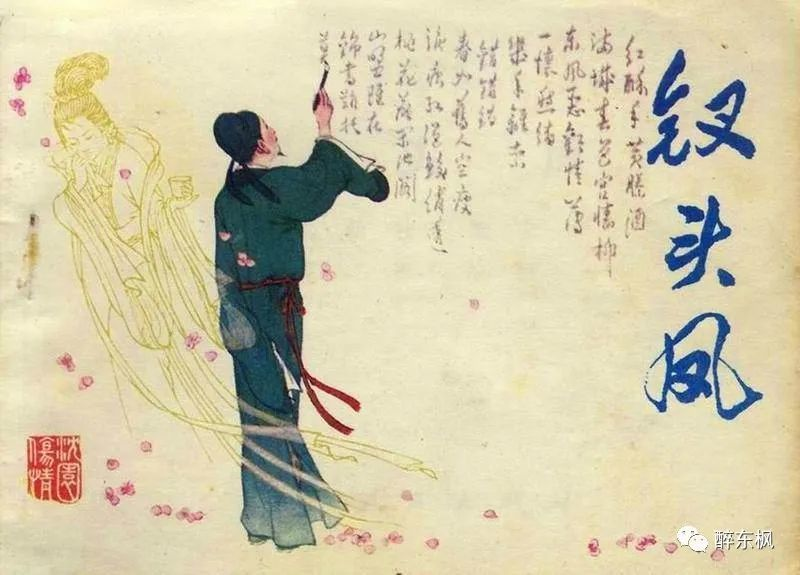 钗头凤
红酥手黄縢酒
满城春色宫墙柳
东风恶欢情薄
一怀愁绪
几年离索
错错错
春如舊人空瘦
泪痕红浥鲛绡透
桃花落闲池阁
山盟雖在
锦书难托
莫
沈園
傷情
醉东枫